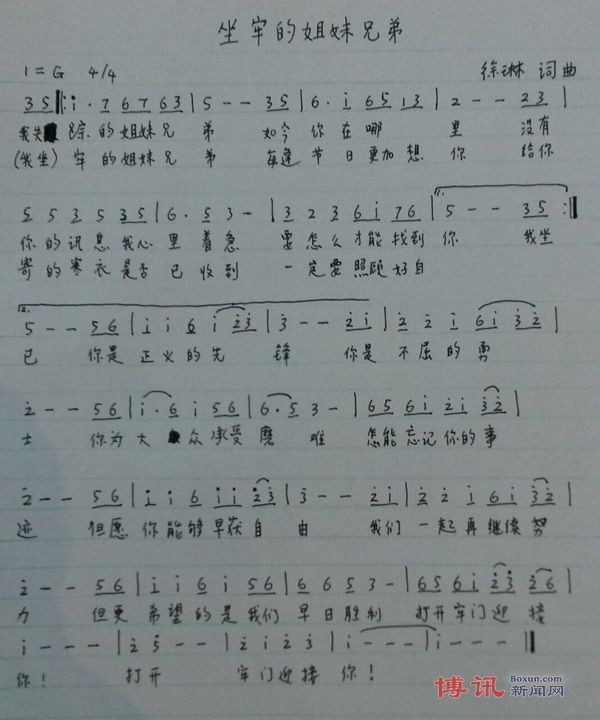 坐牢的姐妹兄弟
1=G 4/4 徐琳 词曲
35‖: i· 7 6 7 6 3 | 5 - - 3 5 | 6· i 6 5 1 3 | 2 - - 2 3 |
我失踪的姐妹兄弟 如今你在哪里 没有
(我坐)牢的姐妹兄弟 每逢节日更加想你 给你
5 5 3 5 3 5 | 6· 5 3 - | 3 2 3 6 i 7 6 | 1. 5 - - 3 5 :‖
你的讯息我心里着急 要怎么才能找到你 我坐
寄的寒衣是否已收到 一定要照顾好自
2. 5 - - 5 6 | i i 6 i 2 3 | 3 - - 2 i | 2 2 i 6 i 3 2 |
已 你是正义的先锋 你是不屈的勇
2 - - 5 6 | i· 6 i 5 6 | 6· 5 3 - | 6 5 6 i 2 i 3 2 |
士 你为大众承受磨难 怎能忘记你的事
2 - - 5 6 | i i 6 i i 2 3 | 3 - - 2 i | 2 2 i 6 i 3 2 |
迹 但愿你能够早获自由 我们一起再继续努
2 - - 5 6 | i i 6 i 5 6 | 6 6 5 3 - | 6 5 6 i 2 3 2 6 |
力 但更希望的是我们早日胜利 打开牢门迎接
i - - - | 2 5 - - | 2 i 2 3 | i - - - | i - - - ‖
你! 打开 牢门迎接你!
博讯 Boxun.com 新闻网